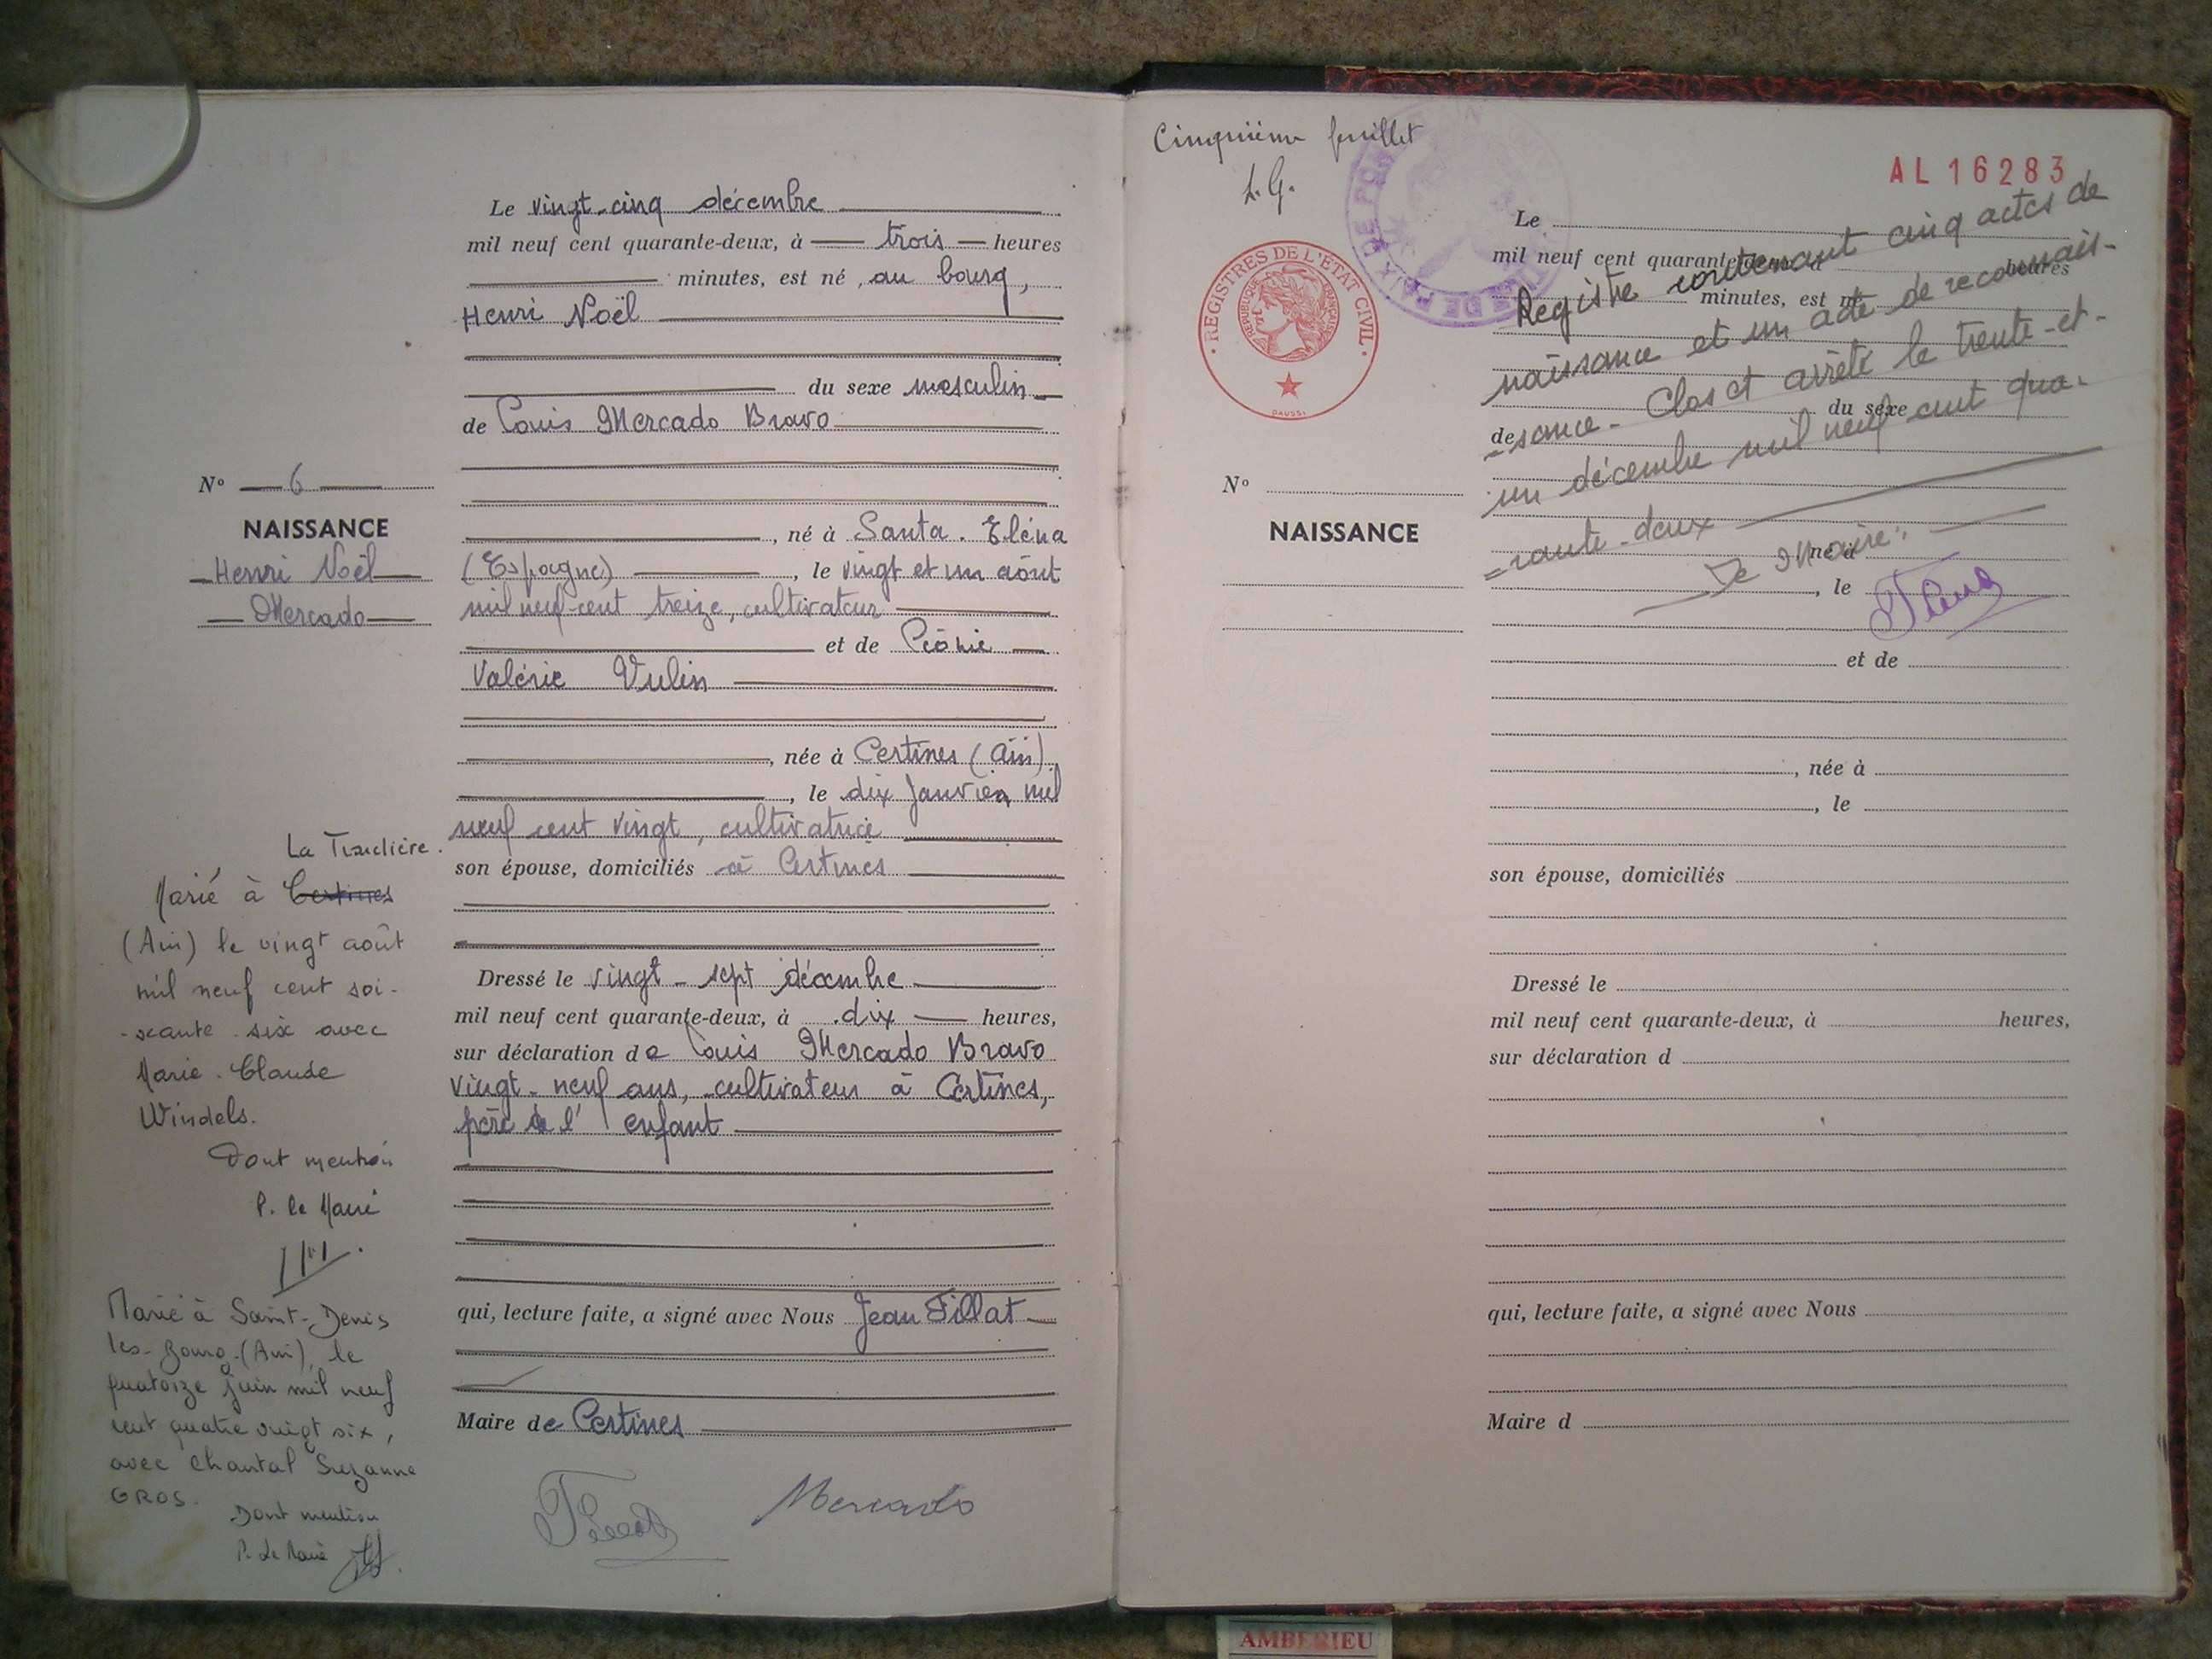 Le vingt-cinq décembre
mil neuf cent quarante-deux, à trois heures
minutes, est né, au bourg,
Henri Noël
du sexe masculin
de Louis Mercado Bravo
né à Santa. Eléna
(Espagne), le vingt et un août
mil neuf cent treize, cultivateur
et de Léonie
Valérie Vulin
, née à Certines (Ain)
, le dix Janvier mil
neuf cent vingt, cultivatrice
son épouse, domiciliés à Certines
Dressé le vingt-sept décembre
mil neuf cent quarante-deux, à dix heures,
sur déclaration de Louis Mercado Bravo
vingt-neuf ans, cultivateur à Certines,
père de l'enfant
qui, lecture faite, a signé avec Nous Jean Tillat
Maire de Certines
Mercado
N° 6
NAISSANCE
Henri Noël
Mercado
La Tranclière.
Marié à Certines
(Ain) le vingt août
mil neuf cent soi-
-xante six avec
Marie-Claude
Windels.
Dont mention
P. le Maire
Marié à Saint-Denis
les-Bourg (Ain), le
quatorze juin mil neuf
cent quatre vingt six,
avec Chantal Suzanne
GROS.
Dont mention
P. Le Maire
Cinquième feuillet
L.G.
AL 16283
REGISTRES DE L'ETAT CIVIL
REPUBLIQUE FRANÇAISE
N°
NAISSANCE
Le
mil neuf cent quarante-deux, à heures
minutes, est né
du sexe
de
né à
, le
et de
, née à
, le
son épouse, domiciliés
Dressé le
mil neuf cent quarante-deux, à heures,
sur déclaration d
qui, lecture faite, a signé avec Nous
Maire d
Registre contenant cinq actes de
naissance et un acte de reconnais-
-sance. Clos et arrêté le trente-et-
un décembre mil neuf cent qua-
=rante-deux
Le Maire:
AMBERIEU